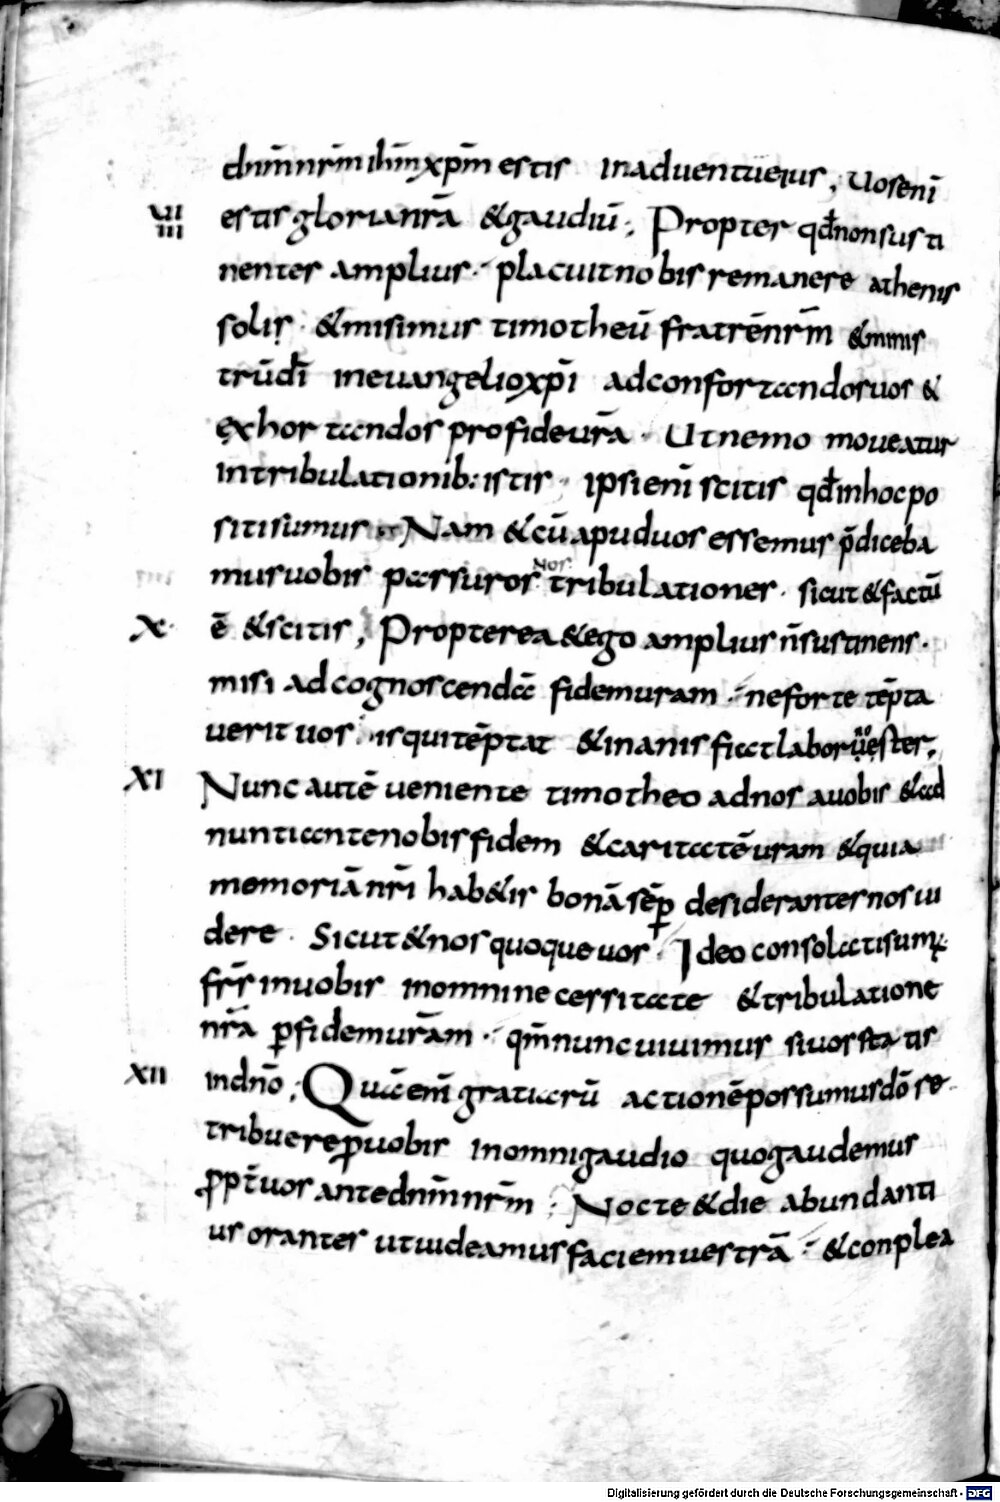 dnm̄ nr̄m ihm̄ xp̄m estis in aduentu eius; Uos eni̅
VII
III
estis gloria nr̄a &gaudiū; Propter qd̄ non susti
nentes amplius placuit nobis remanere athenis
solis &misimus timotheū fratrē nr̄m &minis
trū dī in euangelio xp̄i ad confortandos uos &
exhortandos pro fide ur̄a. Ut nemo moueatur
in tribulationib: istis. ipsi eni̅ scitis qd̄ in hoc po
siti sumus Nam &cū apud uos essemus p̄diceba
mus uobis passuros nos tribulationes. sicut &factū
X
ē &scitis; Propterea &ego amplius n̄ sustinens.
misi ad cognoscenda fidem uram. ne forte tēpta
uerit uos is qui tēptat &inanis fiat labor uester;
XI
Nunc autē ueniente timotheo ad nos a uobis &ad
nuntiante nobis fidem &caritatē uram &quia
memoriā nr̄i hab&is bonā sēp desiderantes nos ui
dere. Sicut &nos quoque uos. Ideo consolati sum;
fr̄s in uobis in omni necessitate &tribulatione
nr̄a p̱ fidem ur̄am. qm̄ nunc uiuimus si uos statis
XII
in dn̄o; Quā eni̅ gratiarū actionē possumus dō re
tribuere p̱ uobis in omni gaudio quo gaudemus
ppt̄ uos ante dnm̄ nr̄m; Nocte &die abundanti
us orantes ut uideamus faciem uestrā. &conplea
Digitalisierung gefördert durch die Deutsche Forschungsgemeinschaft - DFG